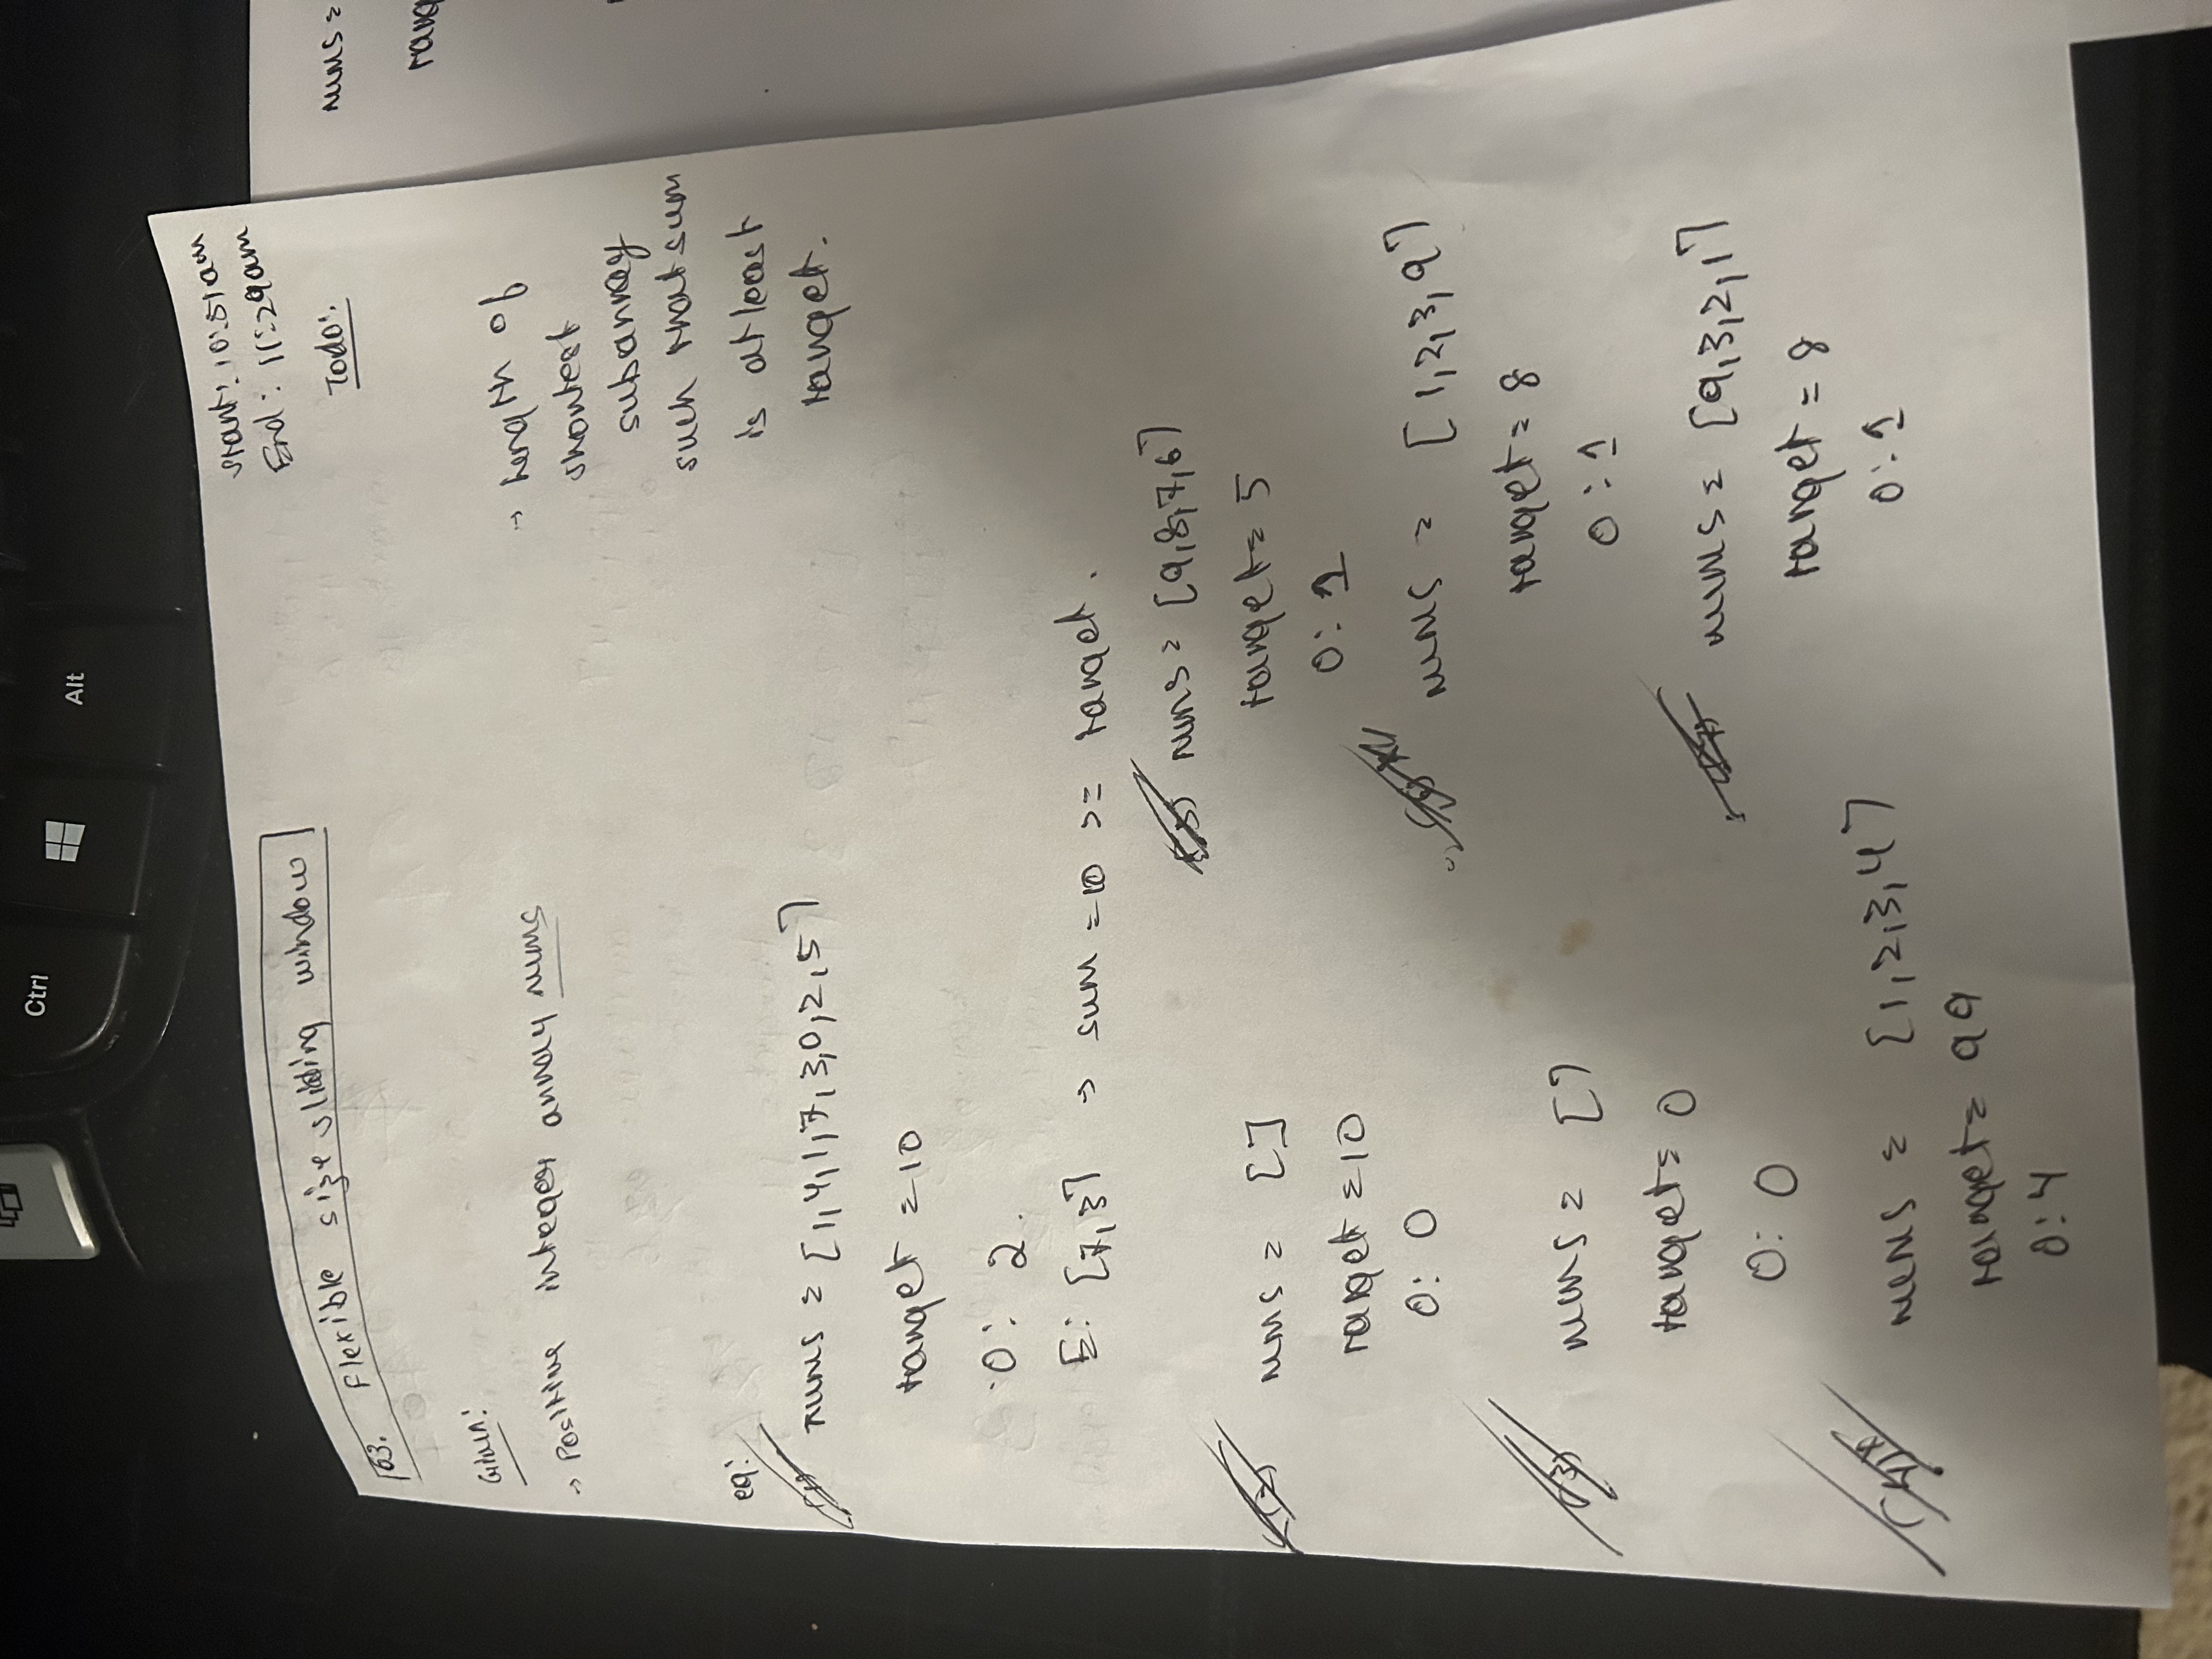 Ctrl
Alt
Start: 10:51am
End: 11:29am
Todo:
63. Flexible size sliding window
Given:
→ Positive integer array nums
→ Length of
shortest
subarray
such that sum
is at least
target.
eg:
(1) nums = [1,4,1,7,3,0,2,5]
target = 10
O: 2.
E: [7,3] → sum = 10 >= target.
(2) nums = []
target = 10
O: 0
(3) nums = []
target = 0
O: 0
(4) nums = [1,2,3,4]
target = 99
O: 4
(5) nums = [9,8,7,6]
target = 5
O: 1
(6) nums = [1,2,3,9]
target = 8
O: 1
(7) nums = [9,3,2,1]
target = 8
O: 1
nums =